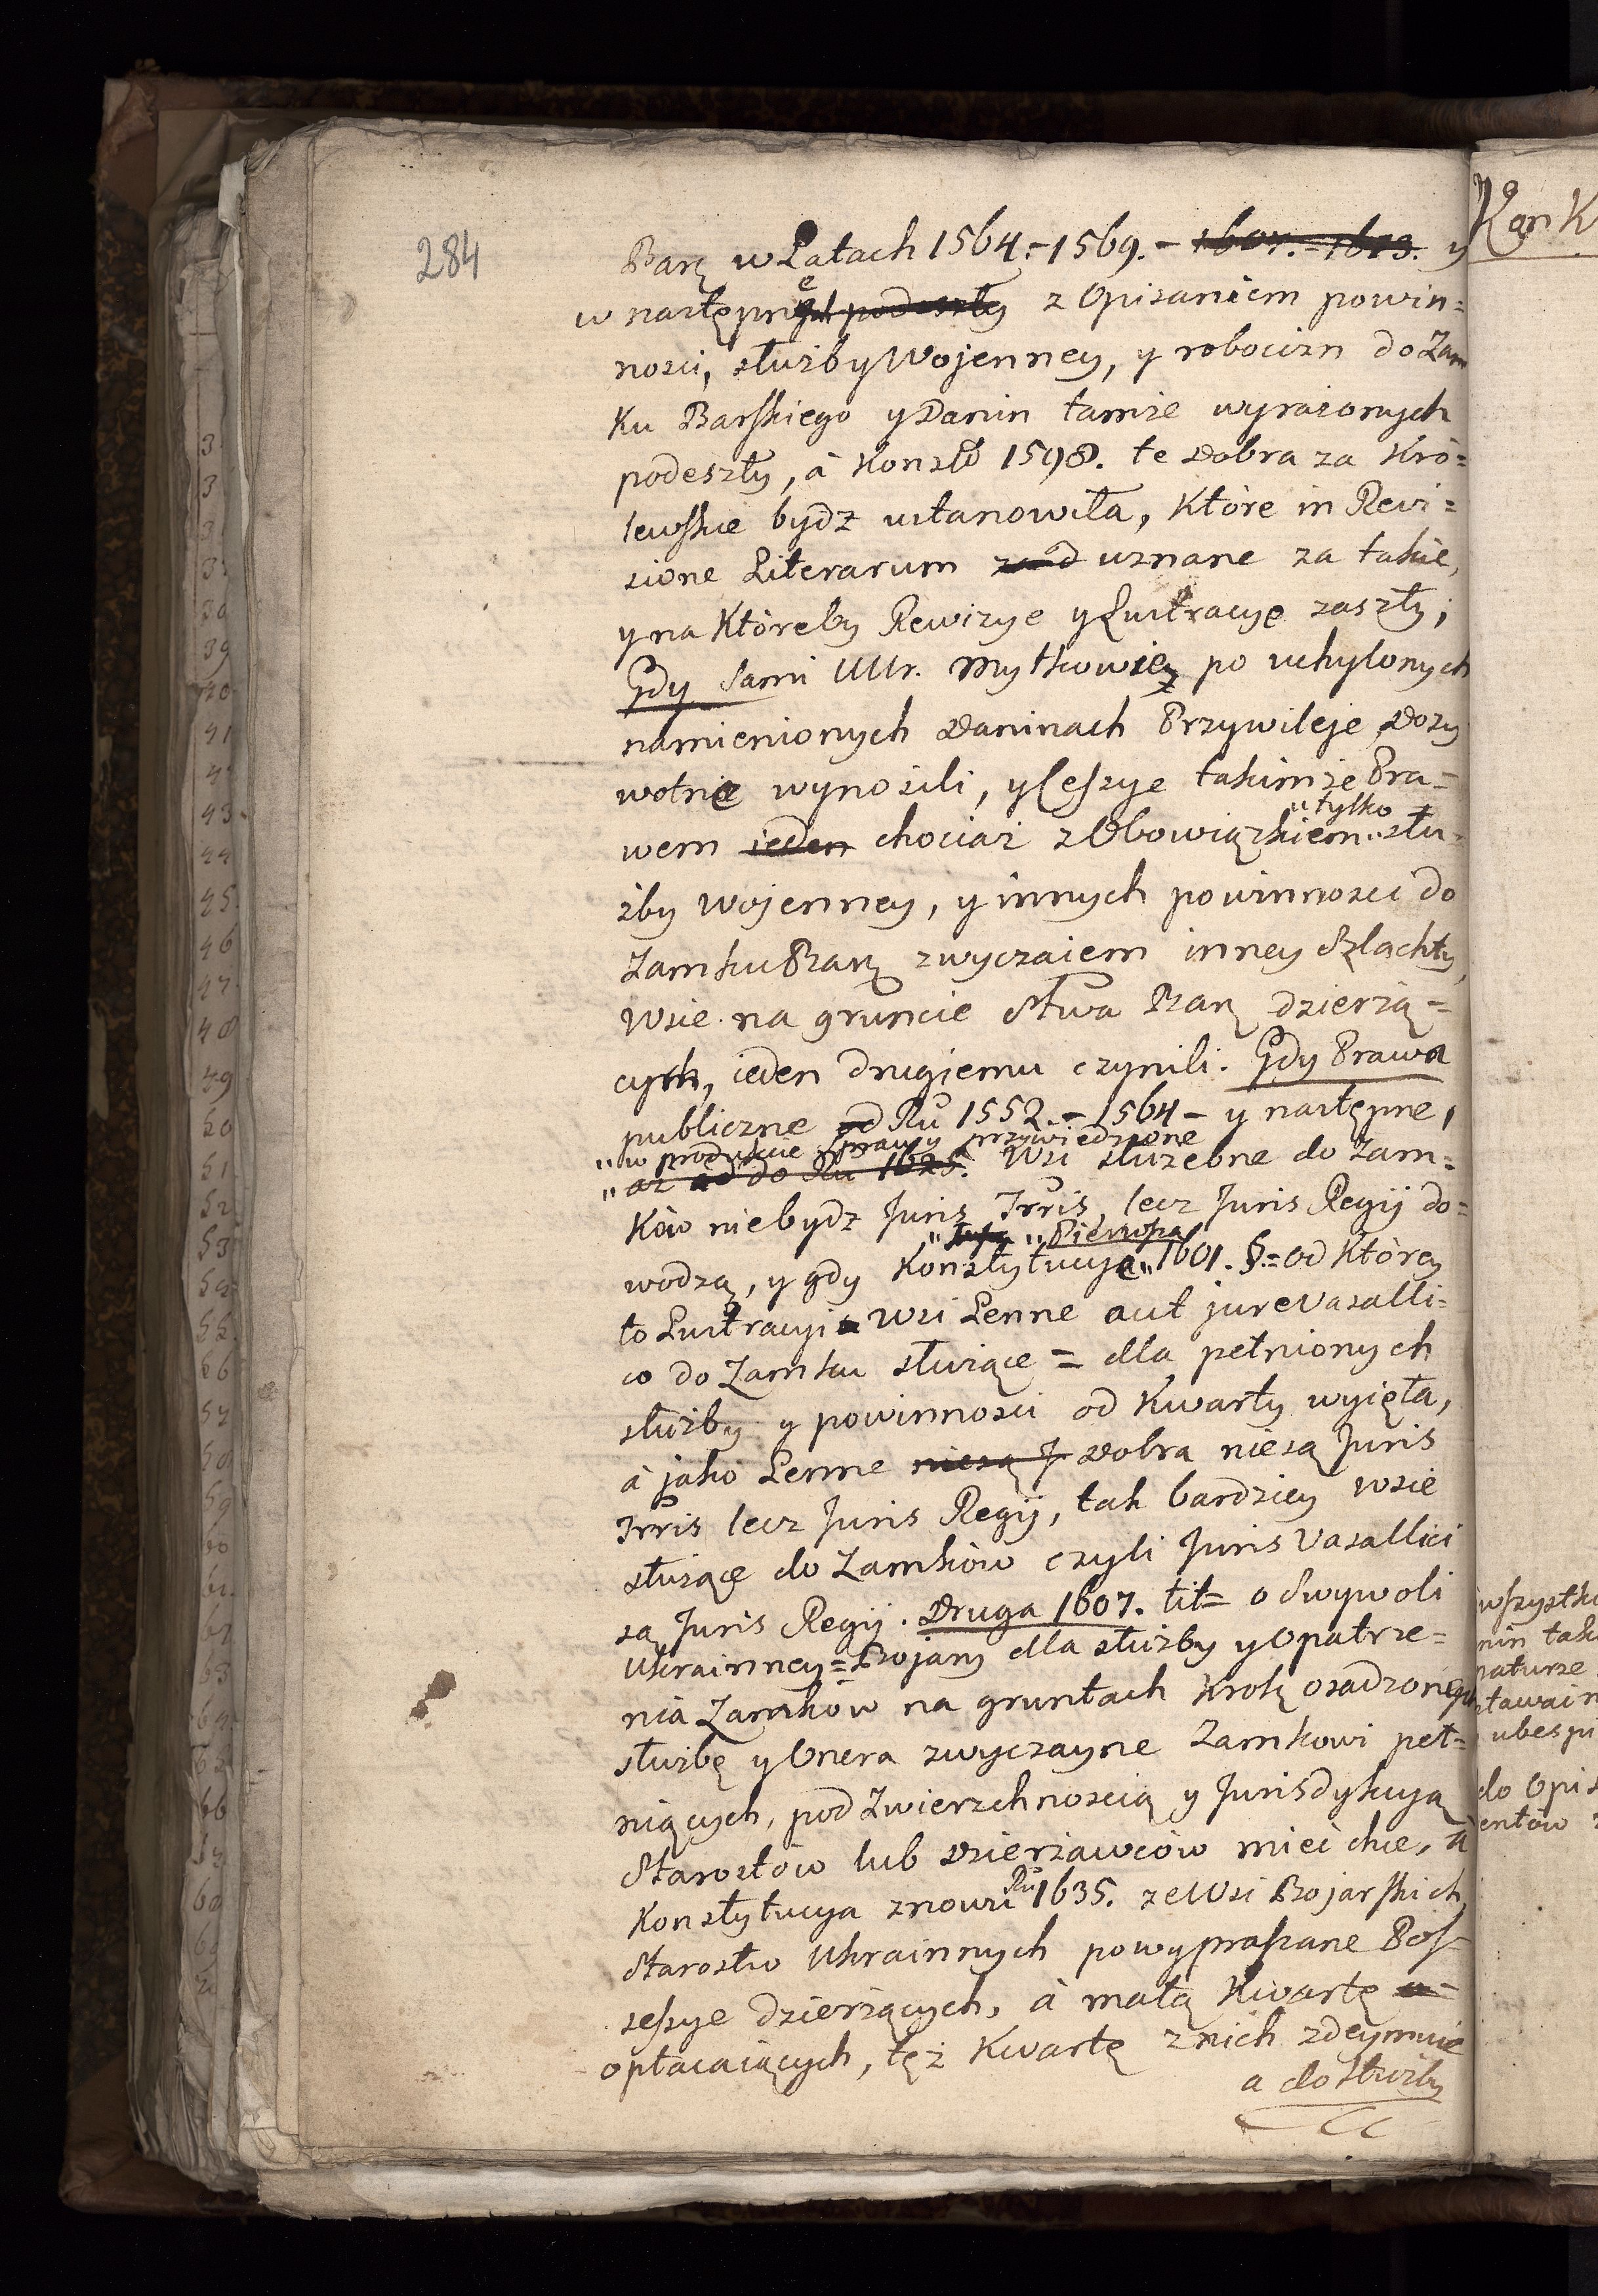 284
Barz w Latach 1564.-1569.- 1607.-1613. y
w następne podeszły z Opisaniem powin=
nosci, służby Wojenney, y robocizn do Zam
ku Barskiego y Danin tamże wyrażonych
podeszły, à Konstõ 1598. te Dobra za Kró=
lewskie bydz ustanowiła, Które in Revi=
sione Literarum uznane za takie,
y na Któreby Rewizye y Lustracye zaszły;
Gdy sami UUr. Mytkowie po uchylonych
namienionych Daninach Przywileje Doży
wotnie wynosili, y Cessye takimże Pra=
wem ieden chociaż z Obowiązkiem "tylko" słu=
żby Wojenney, y innych powinnosci do
Zamku Barz zwyczaiem inney Szlachty,
Wsie na gruncie Stwa Barz dzierżą=
cych, ieden drugiemu czynili. Gdy Prawa
publiczne od Ru 1552.-1564- y następne,
"w produkcie sprawy przywiedzione
"aż do Ru 1625. Wsi służebne do Zam=
Ków niebydz Juris Trris, lecz Juris Regij do=
"Pierwsza
wodzą, y gdy Konstytucya" 1601. §.= od Którey
to Lustracyi Wsi Lenne aut jure Vasalli=
co do Zamku służące = dla pełnionych
służby y powinnosci od Kwarty wyięła,
à jako Lenne niesą J Dobra niesą Juris
Trris lecz Juris Regij, tak bardziey wsie
służące do Zamków czyli Juris Vasallici
są Juris Regij. Druga 1607. tit= o Swywoli
Ukrainney= Bojary dla służby y Opatrze=
nia Zamków na gruntach Krolz osadzonych
służbę y Onera zwyczayne Zamkowi peł=
niących, pod Zwierzchnoscią y Jurisdykcyą
Starostów lub Dzierżawców mieć chce, à
Konstytucya znowu Ru 1635. ze Wsi Bojarskich
Starostw Ukrainnych powypraszane Pos=
sessye dzierżących, à małą Kwartę
opłacaiących, tęż Kwartę z nich zdeymuie
a do służby
Kon K
wszystki
nin tak
naturze
ubespi
do Opis
entów